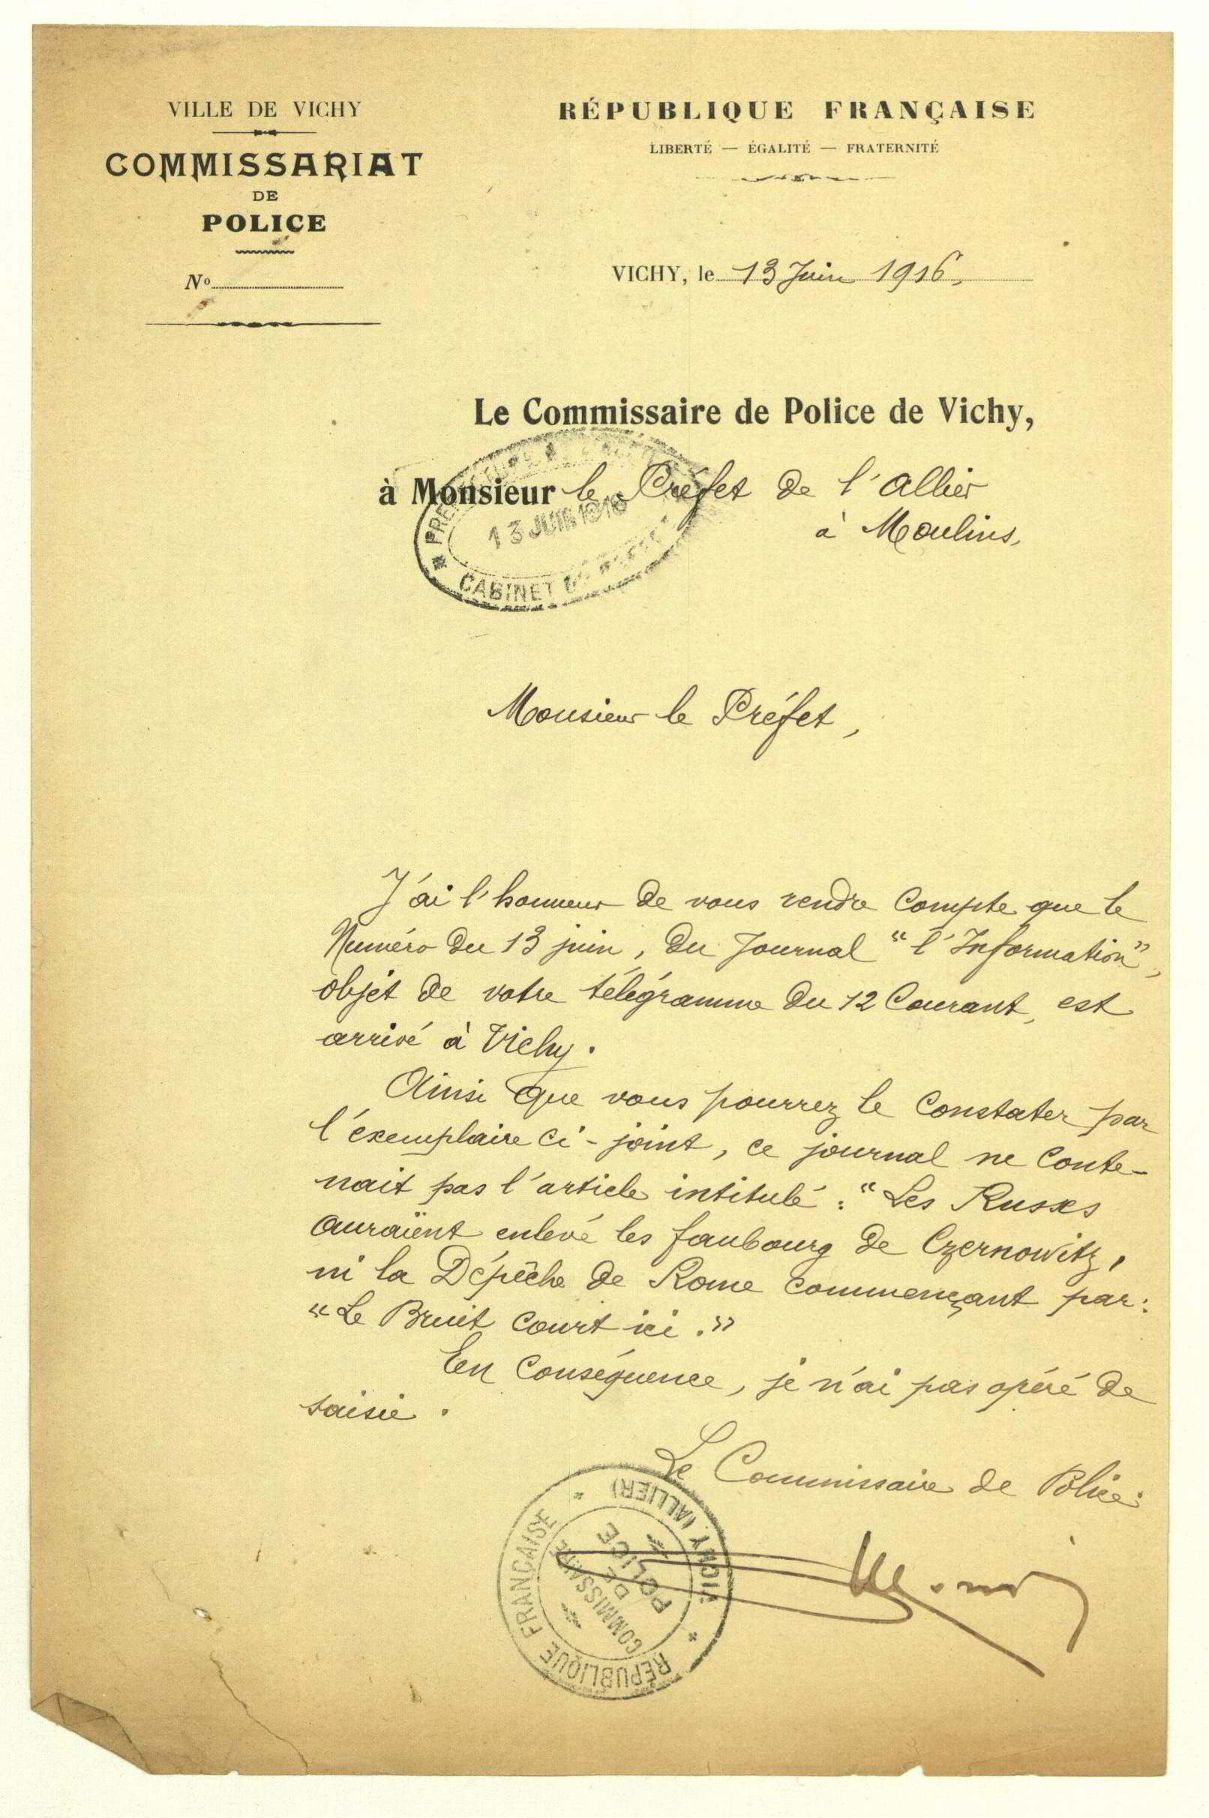 VILLE DE VICHY
COMMISSARIAT
DE
POLICE
No
RÉPUBLIQUE FRANÇAISE
LIBERTÉ — ÉGALITÉ — FRATERNITÉ
VICHY, le 13 Juin 1916.
Le Commissaire de Police de Vichy,
à Monsieur le Préfet de l'Allier
à Moulins,
13 JUIN 1916
CABINET
Monsieur le Préfet,
J'ai l'honneur de vous rendre compte que le
Numéro du 13 juin, du Journal "l'Information",
objét de votre télégramme du 12 Courant, est
arrivé à Vichy.
Ainsi que vous pourrez le Constater par
l'éxemplaire ci-joint, ce journal ne Conte-
nait pas l'article intitulé : "Les Russes
auraient enlevé les faubourg de Czernowitz,
ni la Dépêche de Rome commençant par :
"Le Bruit court ici."
En Conséquence, je n'ai pas opéré de
saisie.
Le Commissaire de Police :
RÉPUBLIQUE FRANÇAISE
VICHY (ALLIER)
COMMISSAIRE
DE
POLICE